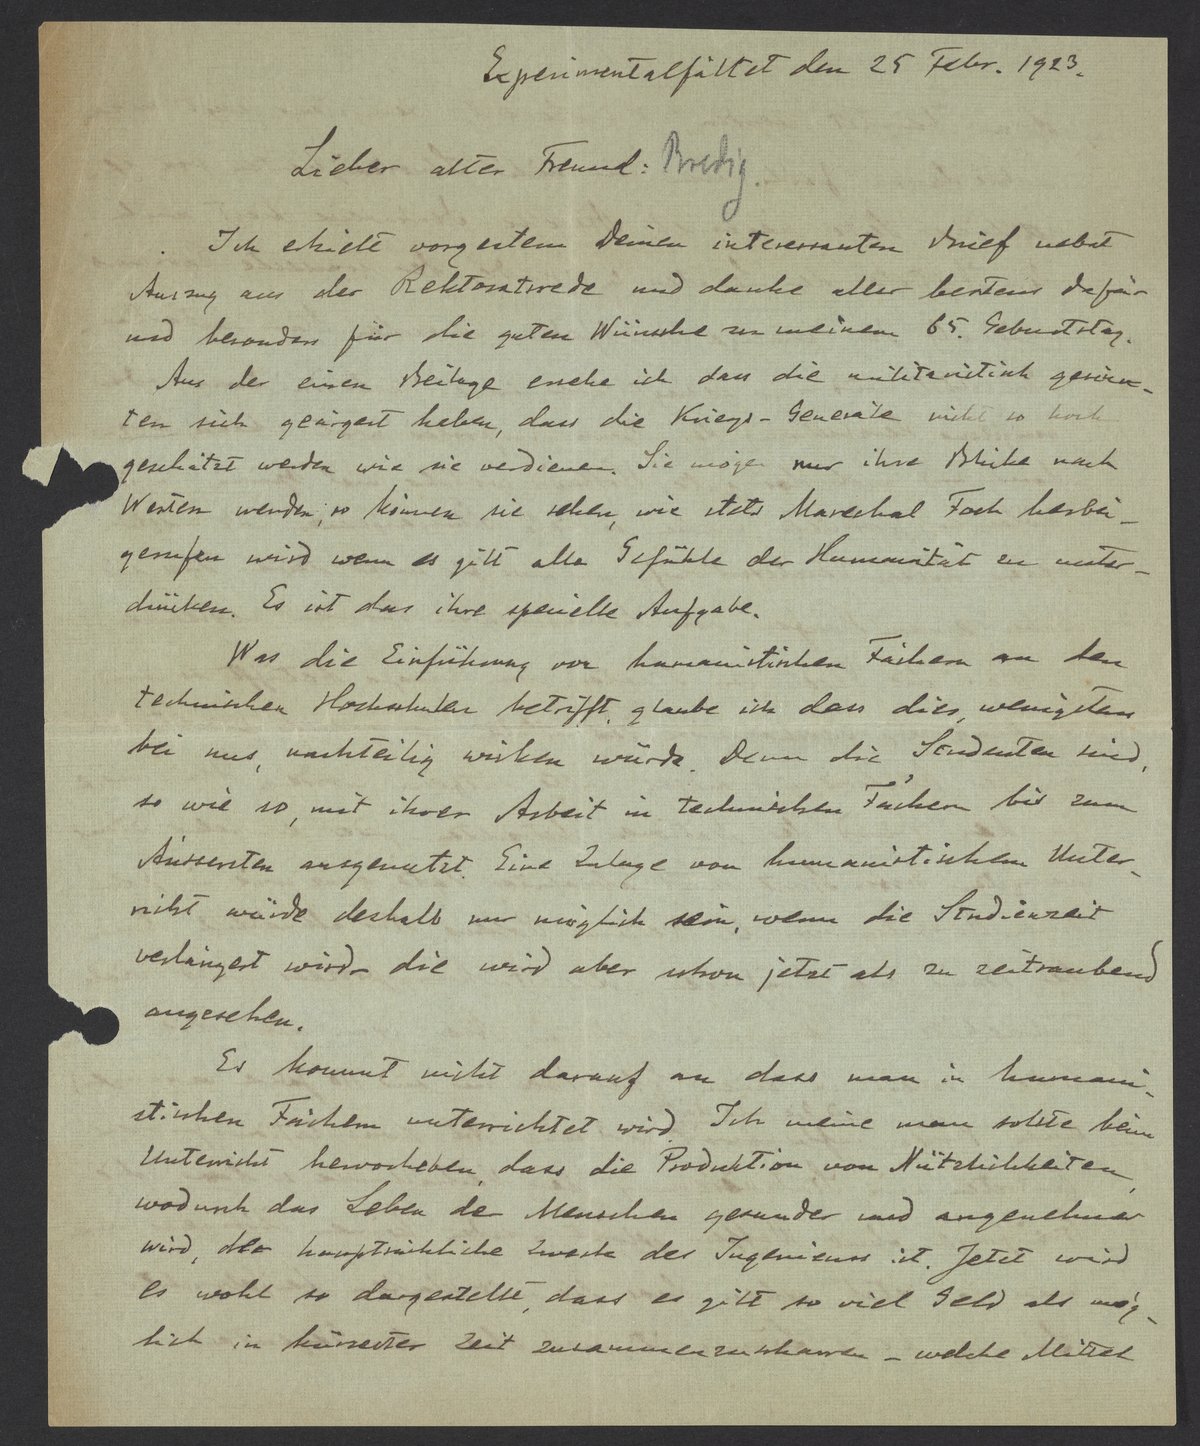 Experimentalfältet den 25 Febr. 1923.
Lieber alter Freund: Bredig.
Ich erhielt vorgestern Deinen interessanten Brief nebst
Auszug aus der Rektoratsrede und danke aller bestens dafür
und besonders für die guten Wünsche zu meinem 65. Geburtstag.
Aus der einen Beilage ersehe ich dass die militaristisch gesinn-
ten sich geärgert haben, dass die Kriegs-Generäle nicht so hoch
geschätzt werden wie sie verdienen. Sie mögen nur ihre Blicke nach
Westen wenden; so können sie sehen, wie stets Marechal Foch herbei-
gerufen wird wenn es gilt alle Gefühle der Humanität zu unter-
drücken. Es ist das ihre spezielle Aufgabe.
Was die Einführung von humanistischen Fächern an den
technischen Hochschulen betrifft, glaube ich dass dies, wenigstens
bei uns, nachteilig wirken würde. Denn die Studenten sind,
so wie so, mit ihrer Arbeit in technischen Fächern bis zum
Äussersten ausgenutzt. Eine Zulage von humanistischem Unter-
richt würde deshalb nur möglich sein, wenn die Studienzeit
verlängert wird - die wird aber schon jetzt als zu zeitraubend
angesehen.
Es kommt nicht darauf an dass man in humani-
stischen Fächern unterrichtet wird. Ich meine man sollte beim
Unterricht hervorheben, dass die Produktion von Nützlichkeiten,
wodurch das Leben der Menschen gesunder und angenehmer
wird, der hauptsächliche Zweck des Ingenieurs ist. Jetzt wird
es wohl so dargestellt, dass es gilt so viel Geld als mög-
lich in kürzester Zeit zusammenzuscharren - welche Mittel